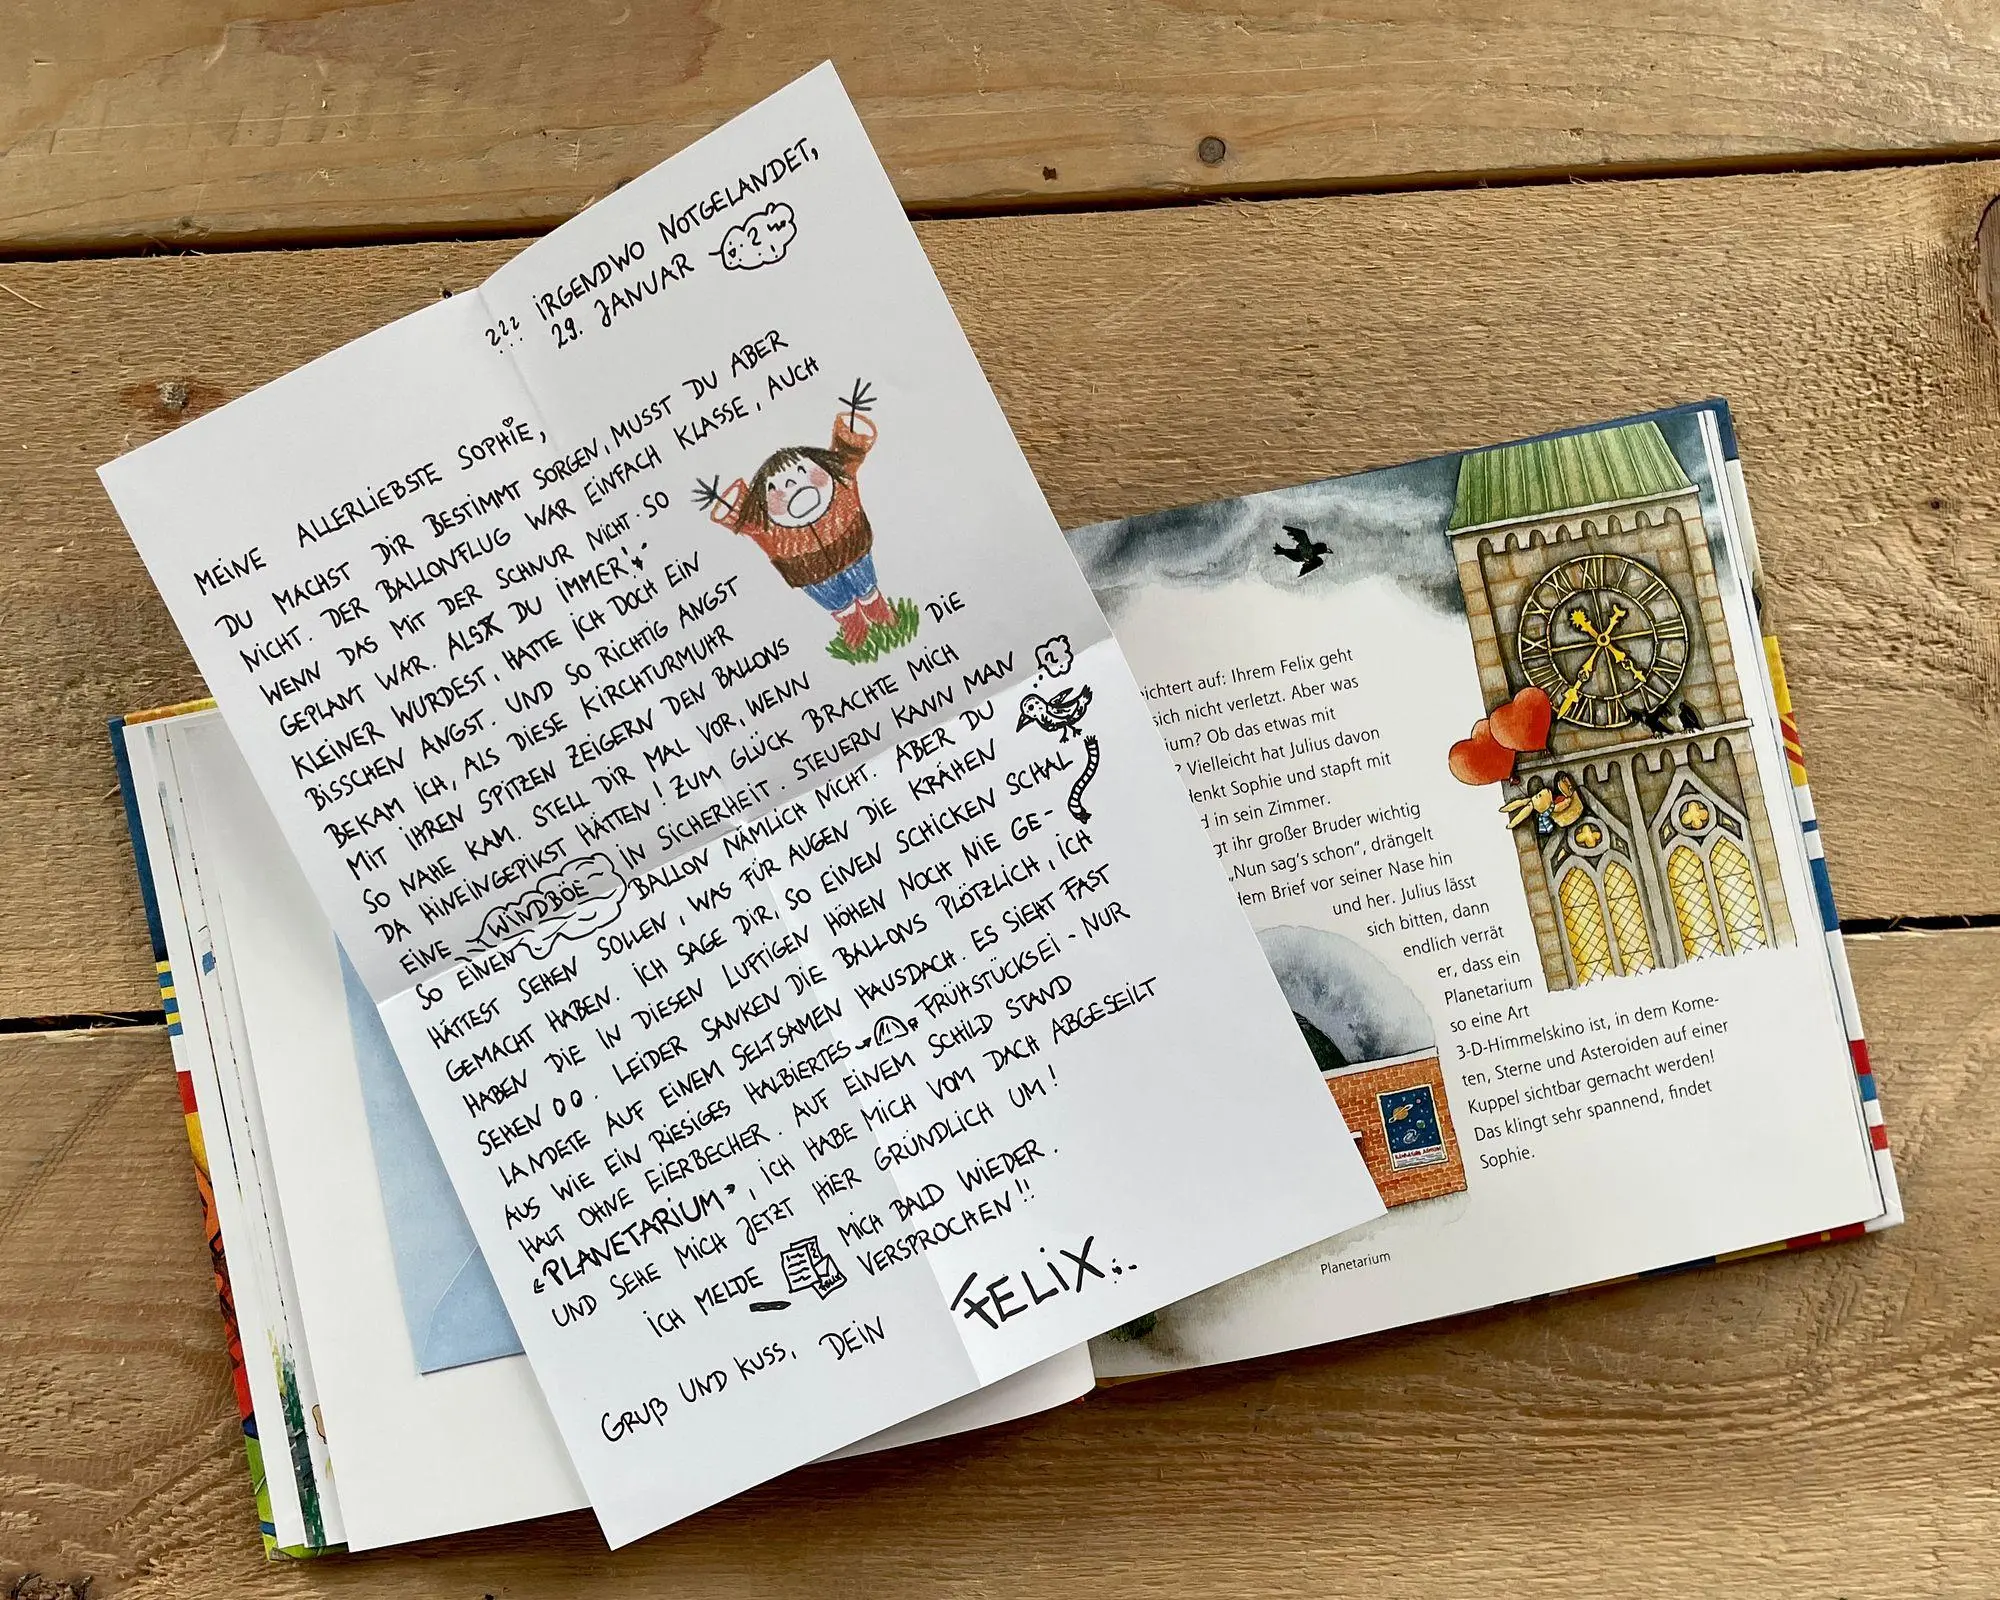 ??? IRGENDWO NOTGELANDET,
29. JANUAR ?
MEINE ALLERLIEBSTE SOPHIE,
DU MACHST DIR BESTIMMT SORGEN, MUSST DU ABER
NICHT. DER BALLONFLUG WAR EINFACH KLASSE, AUCH
WENN DAS MIT DER SCHNUR NICHT SO
GEPLANT WAR. ALS DU IMMER
KLEINER WURDEST, HATTE ICH DOCH EIN
BISSCHEN ANGST. UND SO RICHTIG ANGST
BEKAM ICH, ALS DIESE KIRCHTURMUHR
MIT IHREN SPITZEN ZEIGERN DEN BALLONS
SO NAHE KAM. STELL DIR MAL VOR, WENN DIE
DA HINEINGEPIKST HÄTTEN! ZUM GLÜCK BRACHTE MICH
EINE WINDBÖE IN SICHERHEIT. STEUERN KANN MAN
SO EINEN BALLON NÄMLICH NICHT. ABER DU
HÄTTEST SEHEN SOLLEN, WAS FÜR AUGEN DIE KRÄHEN
GEMACHT HABEN. ICH SAGE DIR, SO EINEN SCHICKEN SCHAL
HABEN DIE IN DIESEN LUFTIGEN HÖHEN NOCH NIE GE-
SEHEN. LEIDER SANKEN DIE BALLONS PLÖTZLICH, ICH
LANDETE AUF EINEM SELTSAMEN HAUSDACH. ES SIEHT FAST
AUS WIE EIN RIESIGES HALBIERTES FRÜHSTÜCKSEI - NUR
HALT OHNE EIERBECHER. AUF EINEM SCHILD STAND
"PLANETARIUM", ICH HABE MICH VOM DACH ABGESEILT
UND SEHE MICH JETZT HIER GRÜNDLICH UM!
ICH MELDE MICH BALD WIEDER.
VERSPROCHEN!!
GRUß UND KUSS, DEIN
FELIX
ichtert auf: Ihrem Felix geht
sich nicht verletzt. Aber was
ium? Ob das etwas mit
? Vielleicht hat Julius davon
denkt Sophie und stapft mit
d in sein Zimmer.
gt ihr großer Bruder wichtig
„Nun sag's schon", drängelt
dem Brief vor seiner Nase hin
und her. Julius lässt
sich bitten, dann
endlich verrät
er, dass ein
Planetarium
so eine Art
3-D-Himmelskino ist, in dem Kome-
ten, Sterne und Asteroiden auf einer
Kuppel sichtbar gemacht werden!
Das klingt sehr spannend, findet
Sophie.
Planetarium